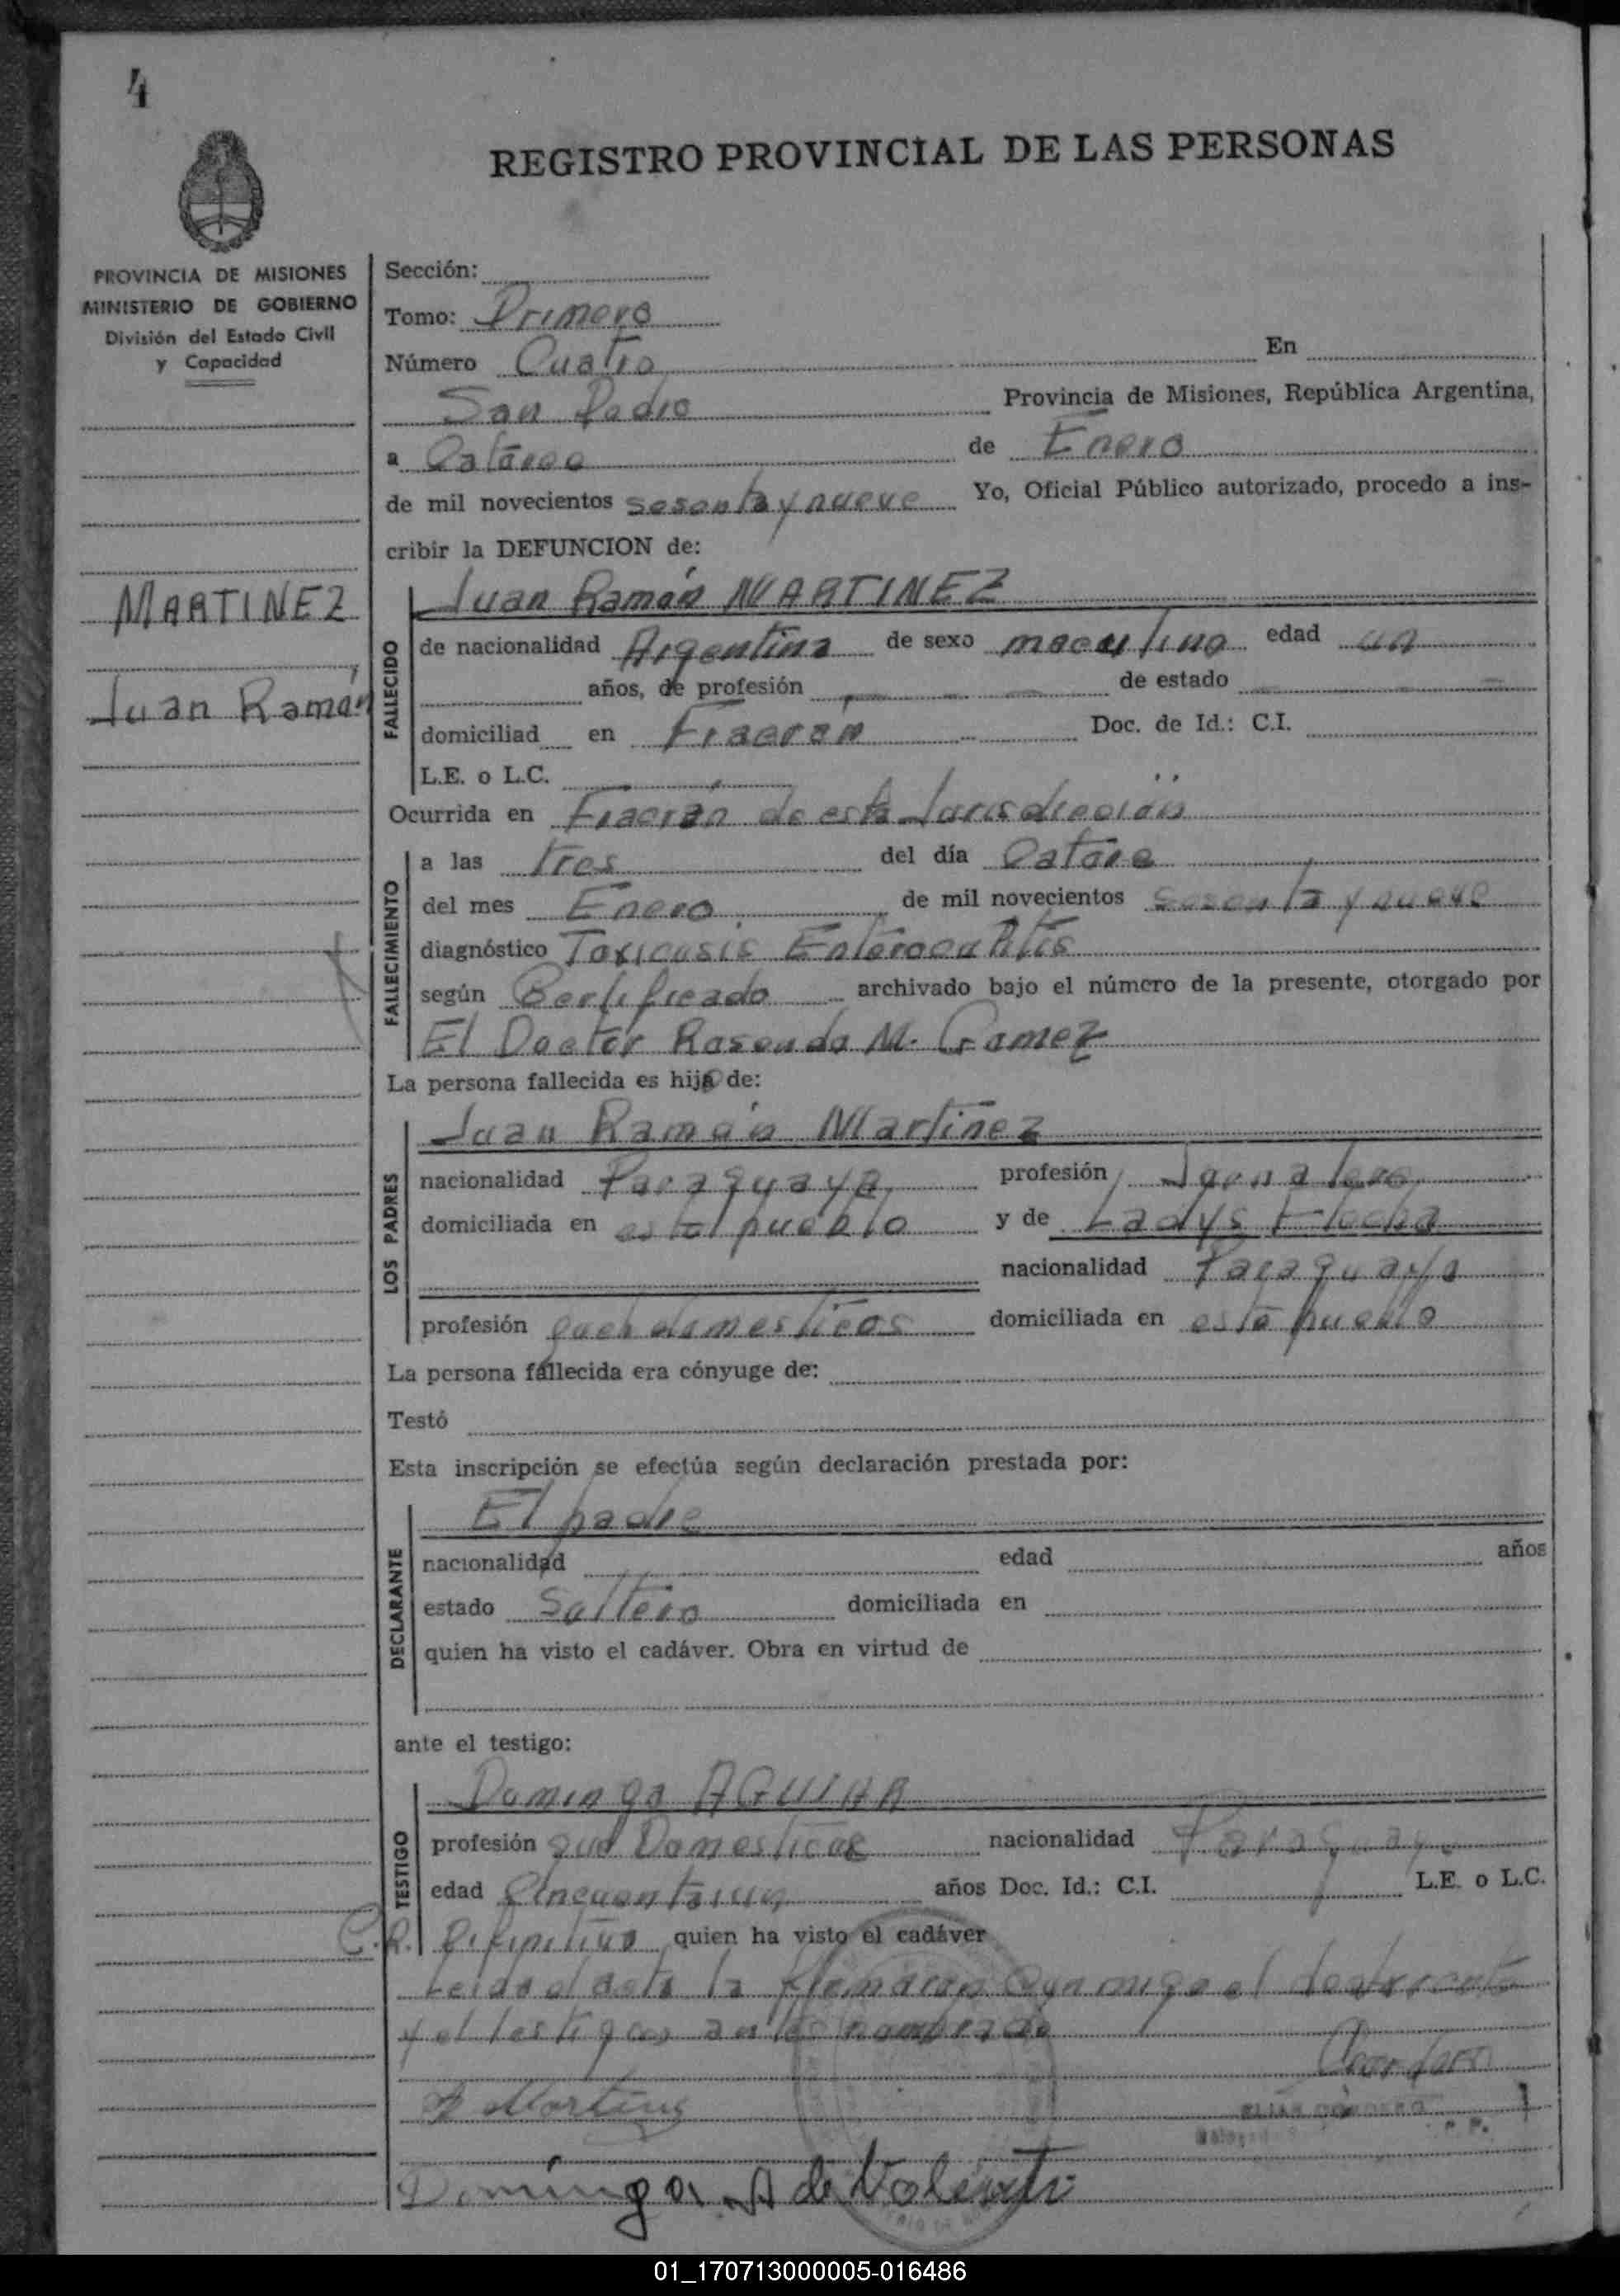 4
REGISTRO PROVINCIAL DE LAS PERSONAS
PROVINCIA DE MISIONES
MINISTERIO DE GOBIERNO
División del Estado Civil
y Capacidad
MARTINEZ
Juan Ramón
Sección:
Tomo: Primero
Número Cuatro En
San Pedro Provincia de Misiones, República Argentina,
a Catorce de Enero
de mil novecientos sesenta y nueve Yo, Oficial Público autorizado, procedo a ins-
cribir la DEFUNCION de:
FALLECIDO
Juan Ramón MARTINEZ
de nacionalidad Argentina de sexo masculino edad un
años, de profesión de estado
domiciliad en Fracrán Doc. de Id.: C.I.
L.E. o L.C.
Ocurrida en Fracrán de esta Jurisdicción
FALLECIMIENTO
a las tres del día Catorce
del mes Enero de mil novecientos sesenta y nueve
diagnóstico Toxicosis
según Certificado archivado bajo el número de la presente, otorgado por
El Doctor Rosendo M. Gomez
La persona fallecida es hijo de:
LOS PADRES
Juan Ramón Martinez
nacionalidad Paraguaya profesión Jornalero
domiciliada en este pueblo y de Ladys
nacionalidad Paraguaya
profesión queh domesticos domiciliada en este pueblo
La persona fallecida era cónyuge de:
Testó
Esta inscripción se efectúa según declaración prestada por:
DECLARANTE
El padre
nacionalidad edad años
estado Soltero domiciliada en
quien ha visto el cadáver. Obra en virtud de
ante el testigo:
TESTIGO
Dominga AGUIAR
profesión Domesticos nacionalidad Paraguaya
edad Cincuenta un años Doc. Id.: C.I. L.E. o L.C.
C.R. Difinitivo quien ha visto el cadáver
Leida el acta la firmaron conmigo el declarante
y el testigos nombrado
Martinez
Dominga A de Volenti
01_170713000005-016486